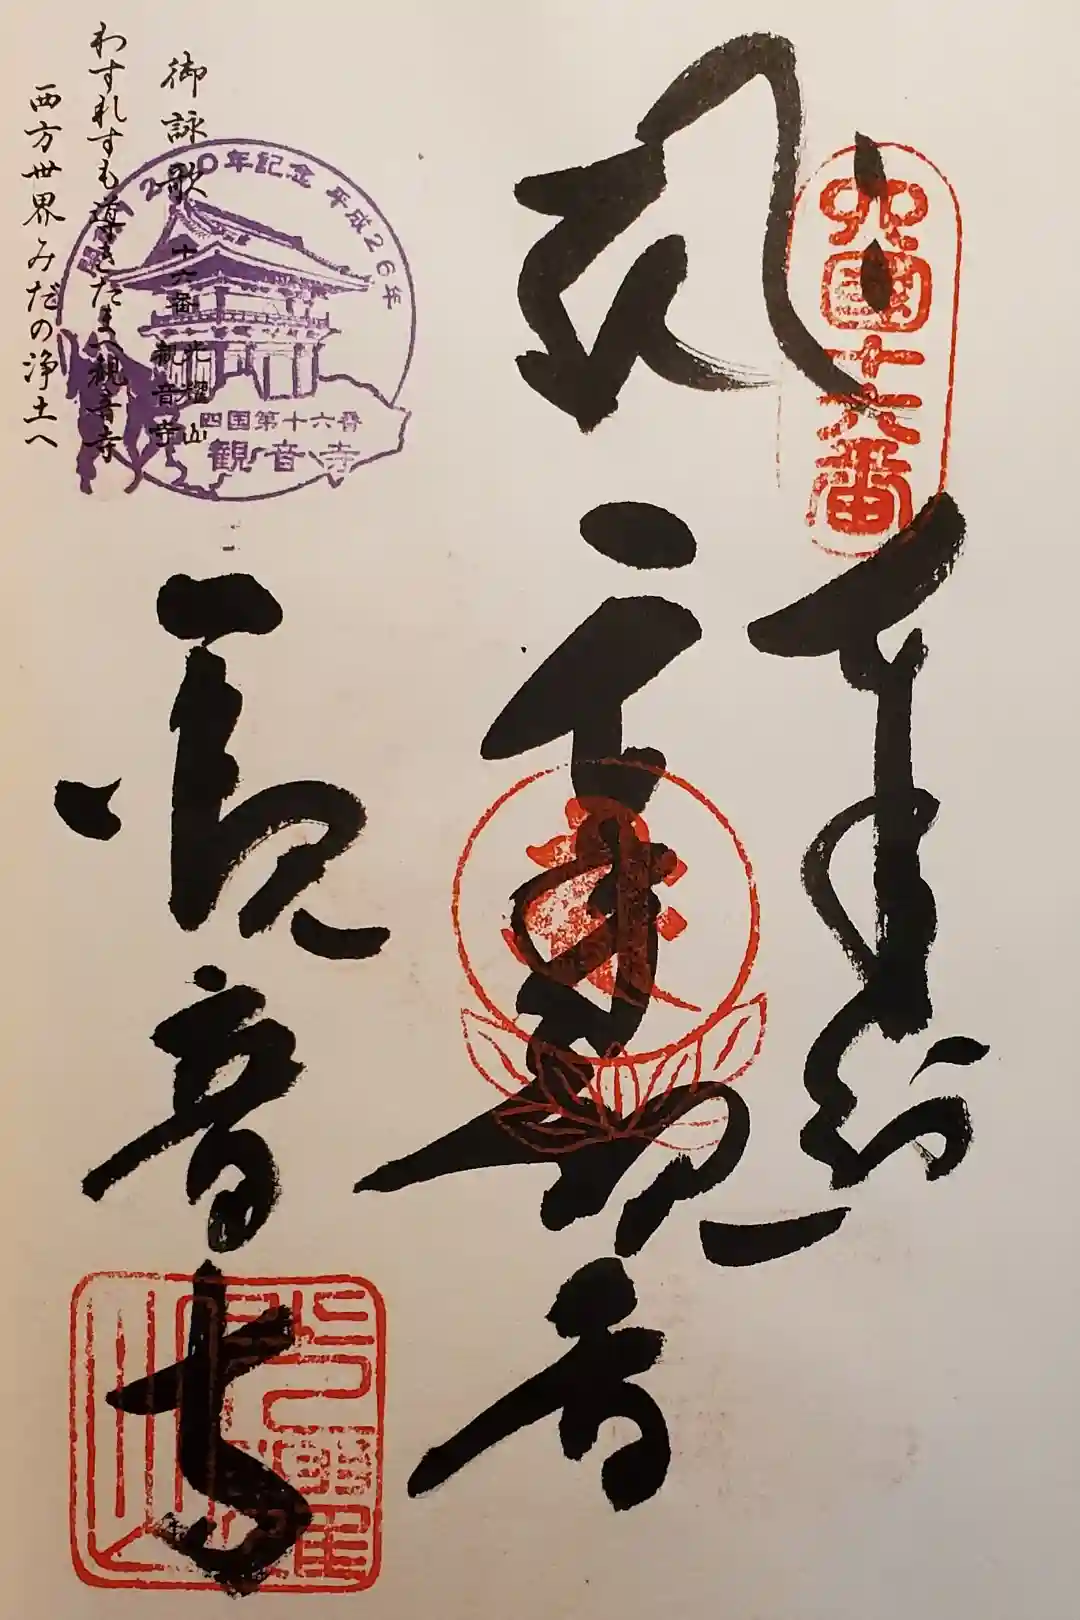 四国十六番
奉納
千手観音
観音寺
開創1200年記念 平成26年
四国第十六番
観音寺
御詠歌 十六番 光耀山
観音寺
わすれずも導きたまへ観音寺
西方世界みだの浄土へ